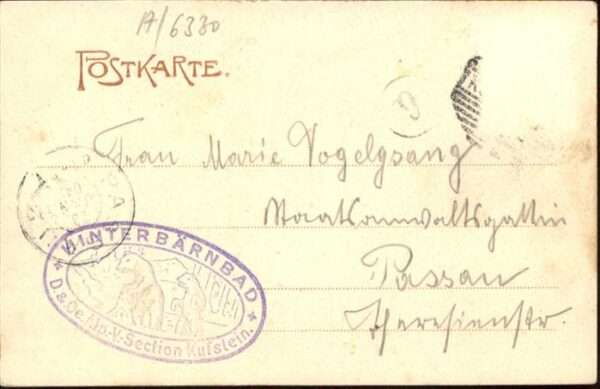 A/6330
POSTKARTE.
Frau Marie Vogelgsang
Staatsanwaltsgattin
Passau
Theresienstr.
* HINTERBÄRNBAD *
D.&Oe.Alp.V.-Section Kufstein.